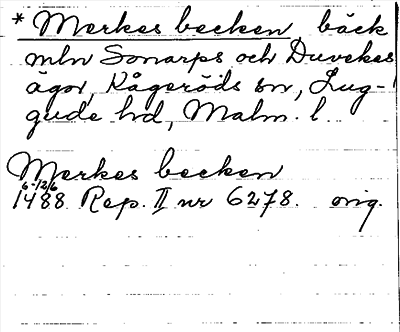 * Merkes becken, bäck
mln Sonarps och Duvekes
ägor, Kågeröds sn, Lug-
gude hd, Malm. l.
Merkes becken
6-12/6
1488 Rep. II nr 6278. orig.